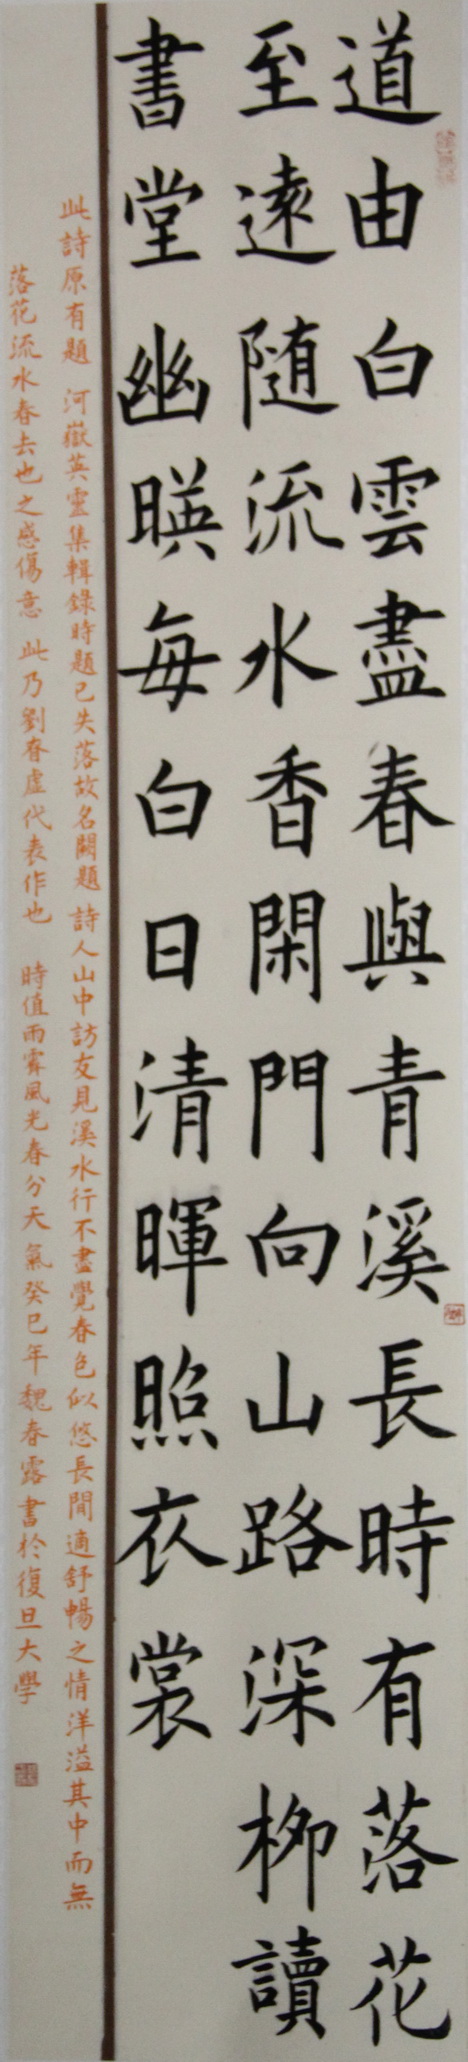 道由白雲盡春與青溪長時有落花
至遠隨流水香閑門向山路深柳讀
書堂幽暎每白日清暉照衣裳
此詩原有題 河嶽英靈集輯錄時題已失落故名闕題 詩人山中訪友見溪水行不盡覺春色似悠長閒適舒暢之情洋溢其中而無
落花流水春去也之感傷意 此乃劉眘虛代表作也 時值雨霽風光春分天氣癸巳年魏春露書於復旦大學